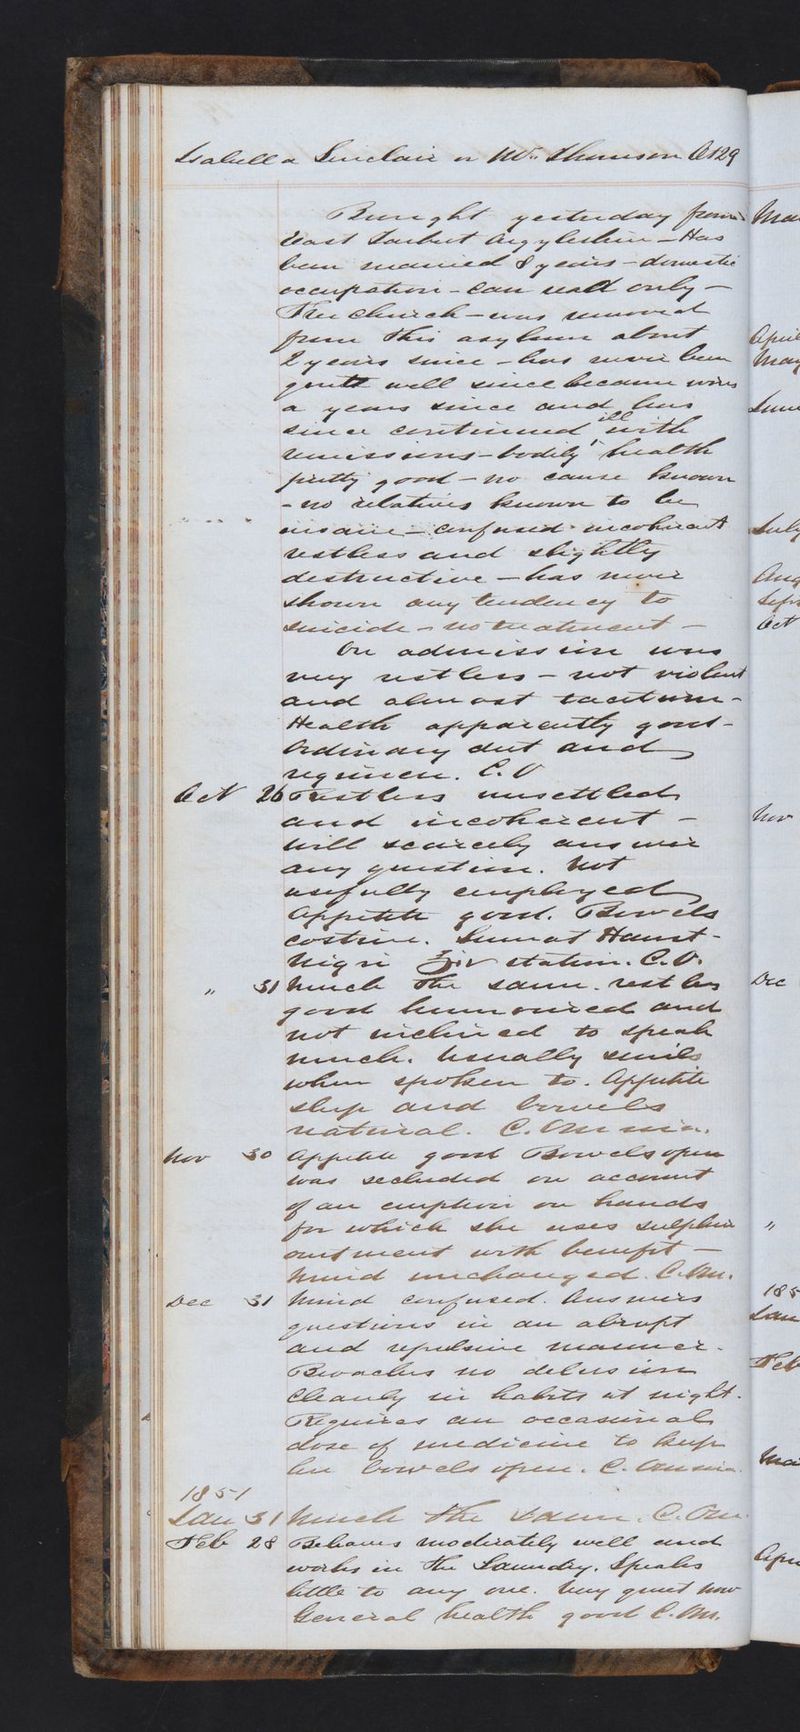 Isabella Sinclair or Mrs. Thomson Æt 29
Brought yesterday from
East Tarbert Argyleshire – Has
been married 8 years – domestic
occupation – can read only –
Free Church – was removed
from this asylum about
2 years since – has never been
quite well since became worse
a years since and has
since continued ill with
remissions – bodily health
pretty good – no cause known
– no relatives known to be
insane – confused incoherent
restless and slightly
destructive – has never
shown any tendency to
suicide – no treatment –
On admission was
very restless – not violent
and almost taciturn –
Health apparently good –
Ordinary diet and
regimen. C.O
Oct 26 Restless unsettled
and incoherent –
will scarcely answer
any question. Not
usefully employed
Appetite good. Bowels
costive. Sumat Haust
Nigri ℥iv statim. C.O.
" 31 Much the same. restless
good humoured and
not inclined to speak
much. Usually smiles
when spoken to. Appetite
sleep and bowels
natural. C.
Nov 30 Appetite good Bowels open
was secluded on account
of an eruption on hands
for which she uses sulphur
ointment with benefit –
Mind unchanged. C. Om.
Dec 31 Mind confused. Answers
questions in an abrupt
and repulsive manner.
Broaches no delusion
Cleanly in habits at night.
Requires an occasional
dose of medicine to keep
her bowels open. C.
1851
Jan 31 Much the same. C. Om.
Feb 28 Behaves moderately well and
works in the Laundry. Speaks
little to any one. Very quiet now
General health good C. Om.
April
May
June
July
Aug
Sept
Oct
Nov
Dec
"
185
Jan
Feb